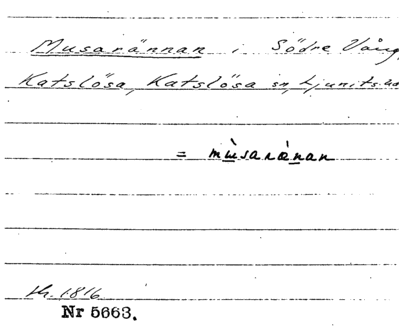 Musarännan i Södre Vång,
Katslösa, Katslösa sn, Ljunits hd
= mùsarànan
1816
Nr 5663.